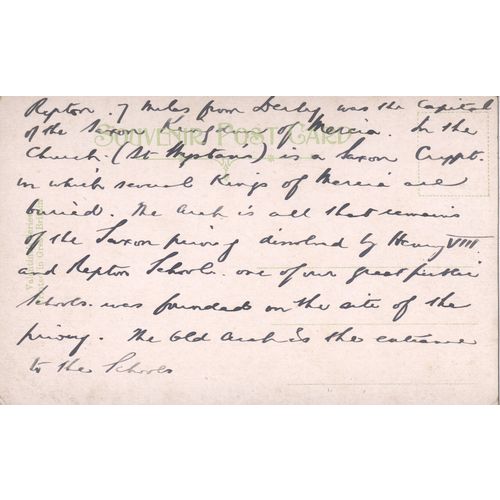 Repton 7 miles from Derby was the Capital
of the Saxon Kings of Mercia. In the
SOUVENIR POST CARD
Church (St Wystans) is a Saxon Crypt.
in which several Kings of Mercia are
buried. The Arch is all that remains
of the Saxon priory dissolved by Henry VIII
and Repton School. one of our great public
Schools. was founded on the site of the
priory. The Old Arch is the entrance
to the Schools